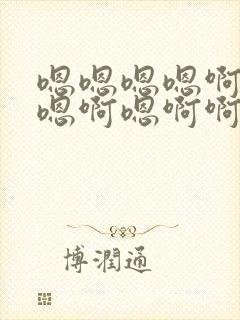 嗯嗯嗯嗯啊
嗯啊嗯啊啊
博润通